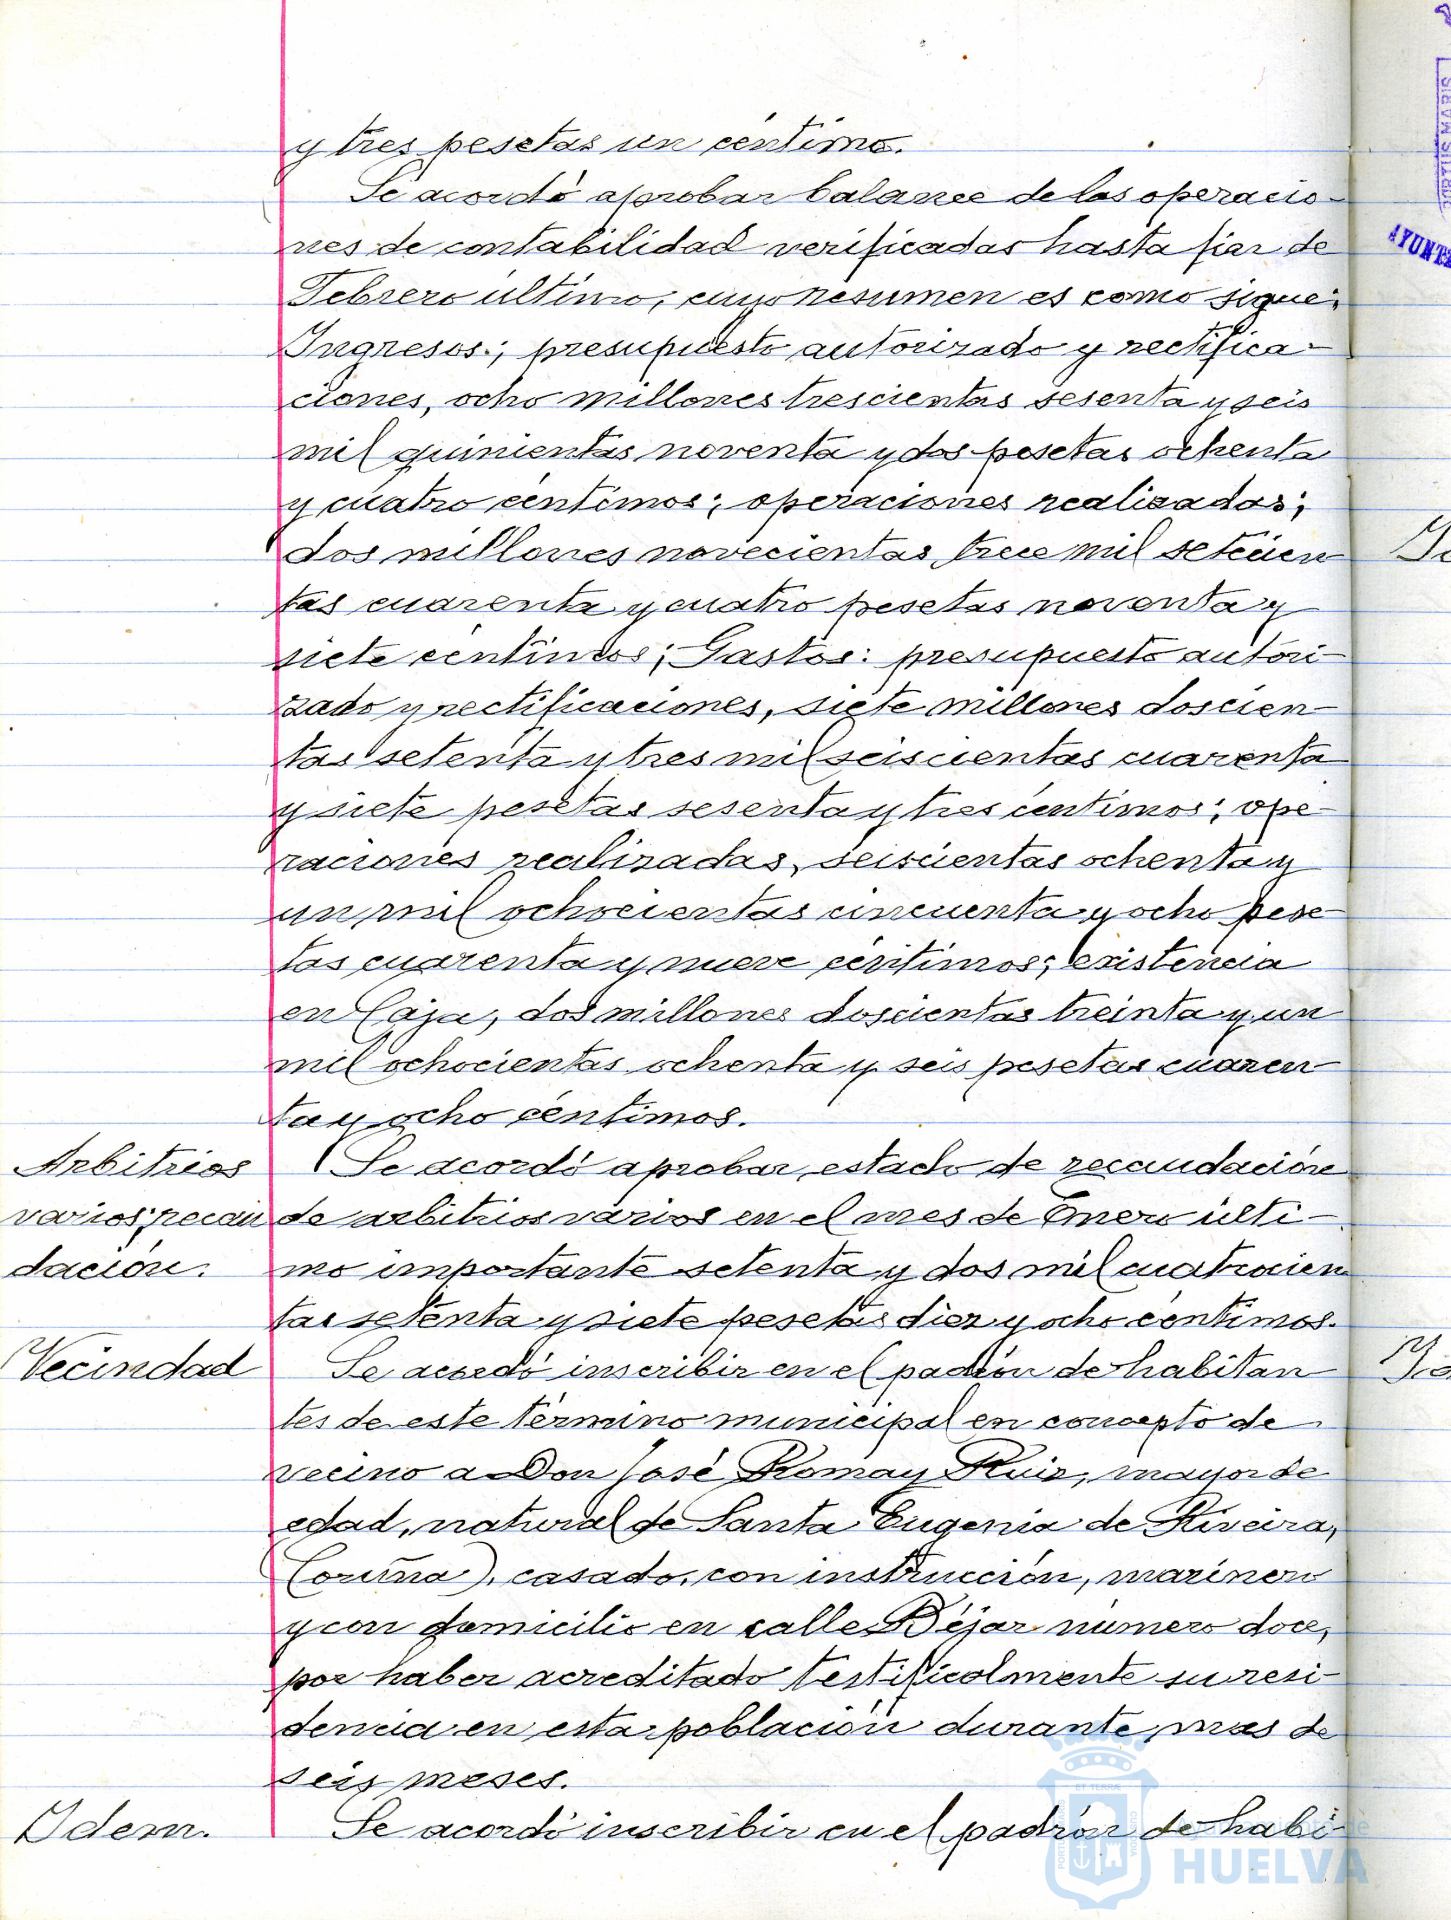 y tres pesetas un céntimo.
Se acordó aprobar balance de las operacio-
nes de contabilidad verificadas hasta fin de
Febrero último, cuyo resumen es como sigue:
Ingresos:; presupuesto autorizado y rectifica-
ciones, ocho millones trescientas sesenta y seis
mil quinientas noventa y dos pesetas ochenta
y cuatro céntimos; operaciones realizadas;
dos millones novecientas trece mil setecien
tas cuarenta y cuatro pesetas noventa y
siete céntimos; Gastos: presupuesto autori-
zado y rectificaciones, siete millones doscien-
tas setenta y tres mil seiscientas cuarenta
y siete pesetas sesenta y tres céntimos; ope-
raciones realizadas, seiscientas ochenta y
un mil ochocientas cincuenta y ocho pese-
tas cuarenta y nueve céntimos; existencia
en Caja, dos millones doscientas treinta y un
mil ochocientas ochenta y seis pesetas cuaren-
ta y ocho céntimos.
Arbitrios
varios; recau
dación.
Se acordó aprobar estado de recaudación
de arbitrios varios en el mes de Enero últi-
mo importante setenta y dos mil cuatrocien
tas setenta y siete pesetas diez y ocho céntimos.
Vecindad
Se acordó inscribir en el padrón de habitan
tes de este término municipal en concepto de
vecino a Don José Romay Ruiz, mayor de
edad, natural de Santa Eugenia de Riveira,
(Coruña), casado, con instrucción, marinero
y con domicilio en calle Béjar número doce,
por haber acreditado testificalmente su resi-
dencia en esta población durante mas de
seis meses.
Idem.
Se acordó inscribir en el padrón de habi-
PORTUS MARIS
AYUNTA
Ayuntamiento de
HUELVA